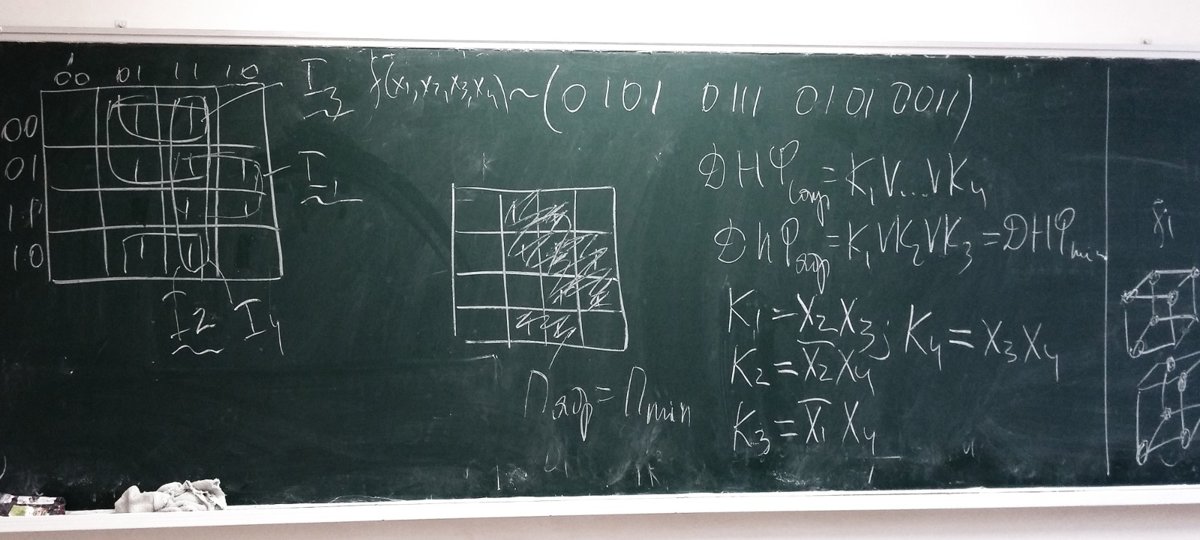 00 01 11 10
00
01
11
10
1 1
1 1 1
1 1
1 1
I3
I1
I2 I4
f(x1,x2,x3,x4)~(0101 0111 0101 0011)
ДНФсокр=K1V...VK4
ДНФядр=K1VK2VK3=ДНФmin
K1=X2X3; K4=X3X4
K2=X̅2X4
K3=X̅1X4
Пядр=Пmin